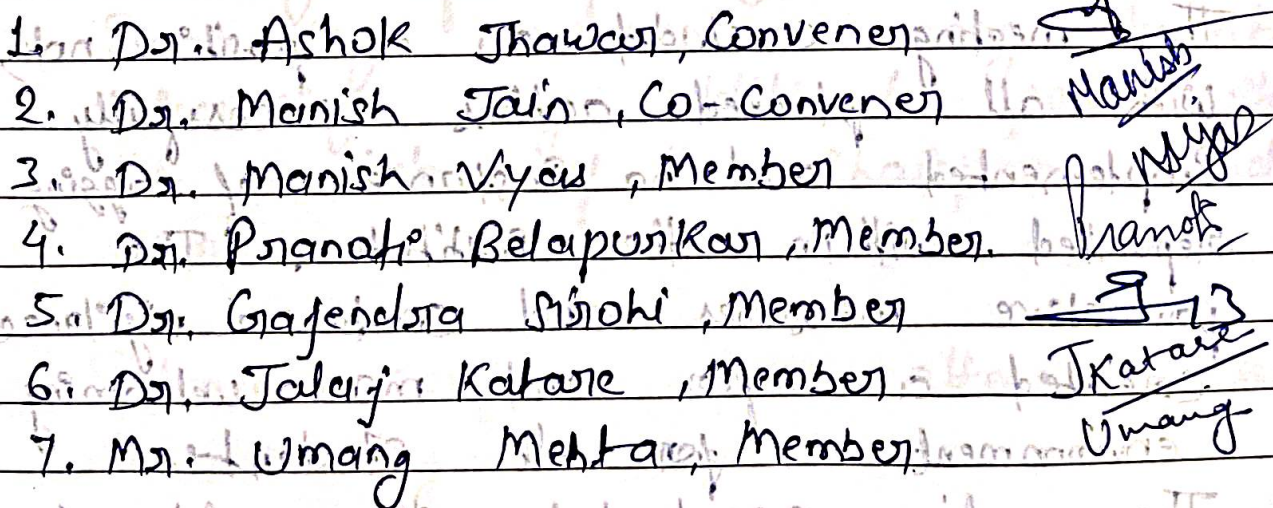 1. Dr. Ashok Jhawar, Convener
2. Dr. Manish Jain, Co-Convener Manish
3. Dr. Manish Vyas, Member MVyas
4. Dr. Pranati Belapurkar, Member. Pranati
5. Dr. Gajendra Sirohi, Member
6. Dr. Jalaj Katare, Member JKatare
7. Mr. Umang Mehta, Member Umang